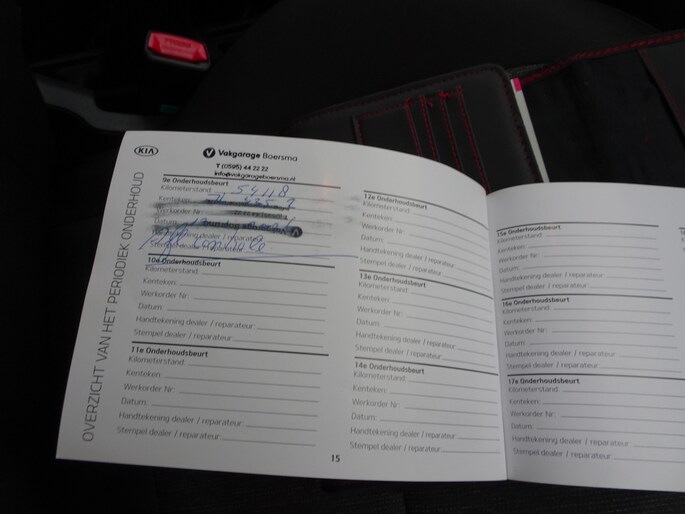 KIA
Vakgarage Boersma
T (0595) 44 22 22
info@vakgarageboersma.nl
OVERZICHT VAN HET PERIODIEK ONDERHOUD
9e Onderhoudsbeurt
Kilometerstand: 54118
Kenteken:
Werkorder Nr:
Datum:
Handtekening dealer / reparateur:
Stempel dealer / reparateur:
10e Onderhoudsbeurt
Kilometerstand:
Kenteken:
Werkorder Nr:
Datum:
Handtekening dealer / reparateur:
Stempel dealer / reparateur:
11e Onderhoudsbeurt
Kilometerstand:
Kenteken:
Werkorder Nr:
Datum:
Handtekening dealer / reparateur:
Stempel dealer / reparateur:
12e Onderhoudsbeurt
Kilometerstand:
Kenteken:
Werkorder Nr:
Datum:
Handtekening dealer / reparateur:
Stempel dealer / reparateur:
13e Onderhoudsbeurt
Kilometerstand:
Kenteken:
Werkorder Nr:
Datum:
Handtekening dealer / reparateur:
Stempel dealer / reparateur:
14e Onderhoudsbeurt
Kilometerstand:
Kenteken:
Werkorder Nr:
Datum:
Handtekening dealer / reparateur:
Stempel dealer / reparateur:
15
15e Onderhoudsbeurt
Kilometerstand:
Kenteken:
Werkorder Nr:
Datum:
Handtekening dealer / reparateur:
Stempel dealer / reparateur:
16e Onderhoudsbeurt
Kilometerstand:
Kenteken:
Werkorder Nr:
Datum:
Handtekening dealer / reparateur:
Stempel dealer / reparateur:
17e Onderhoudsbeurt
Kilometerstand:
Kenteken:
Werkorder Nr:
Datum:
Handtekening dealer / reparateur:
Stempel dealer / reparateur:
PRESS